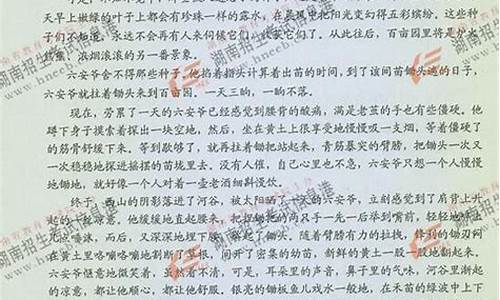 天早上嫩绿的叶子上都会有珍珠一样的露水，在晨风中把阳光变幻得五彩缤纷。这些种
子们不知道，永远不会再有人来伺候它们，收获它们了。从此往后，百亩园里将是炉火
浓烟滚滚的另一番景象。
六安爷舍不得那些种子。他掐着指头计算着出苗的时间，到了该间苗锄头遍的日子，
六安爷就拄着锄头来到百亩园。一天三晌，一晌不落。
现在，劳累了一天的六安爷已经感觉到腰背的酸痛，满是老茧的手也有些僵硬。他
蹲下身子摸索着探出一块空地，然后，坐在黄土上很享受地慢慢吸一支烟，等着僵硬了
的筋骨舒缓下来。等到歇够了，就再拄着锄把站起来，青筋暴突的臂膀，把锄头一次又
一次稳稳地探进摇摆的苗垅里去。没有人催，自己心里也不急，六安爷只想一个人慢慢
地锄地，就好像一个人对着一壶老酒细斟慢饮。
终于，西山的阴影落进了河谷，被太阳晒了一天的六安爷，立刻感觉到了肩背上升
起的一丝凉意。他缓缓地直起腰来，把捏锄把的两只手一先一后举到嘴前，轻轻地啐上
几点唾沫，而后，又深深地埋下腰，举起了锄头。随着臂膀有力的拉拽，锋利的锄刃闷
在黄土里咯嘣咯嘣地割断了草根，间开了密集的幼苗，新鲜的黄土一股一股地翻起来。
六安爷惬意地微笑着，虽然看不清，可是，耳朵里的声音，鼻子里的气味，河谷里渐起
的凉意，都让他顺心，都让他舒服。银亮的锄板鱼儿戏水一般地，在禾苗的绿波中上下
湖南招生考试信息港
www.hneeb.cn